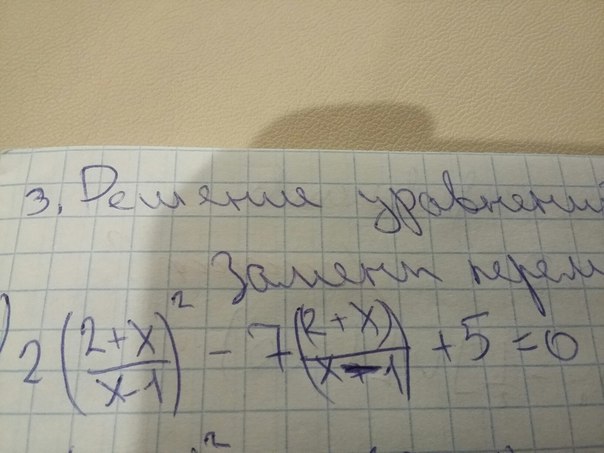 3. Решение уравнений
Замены перем
) 2((2+x)/(x-1))² - 7((2+x)/(x-1)) + 5 = 0